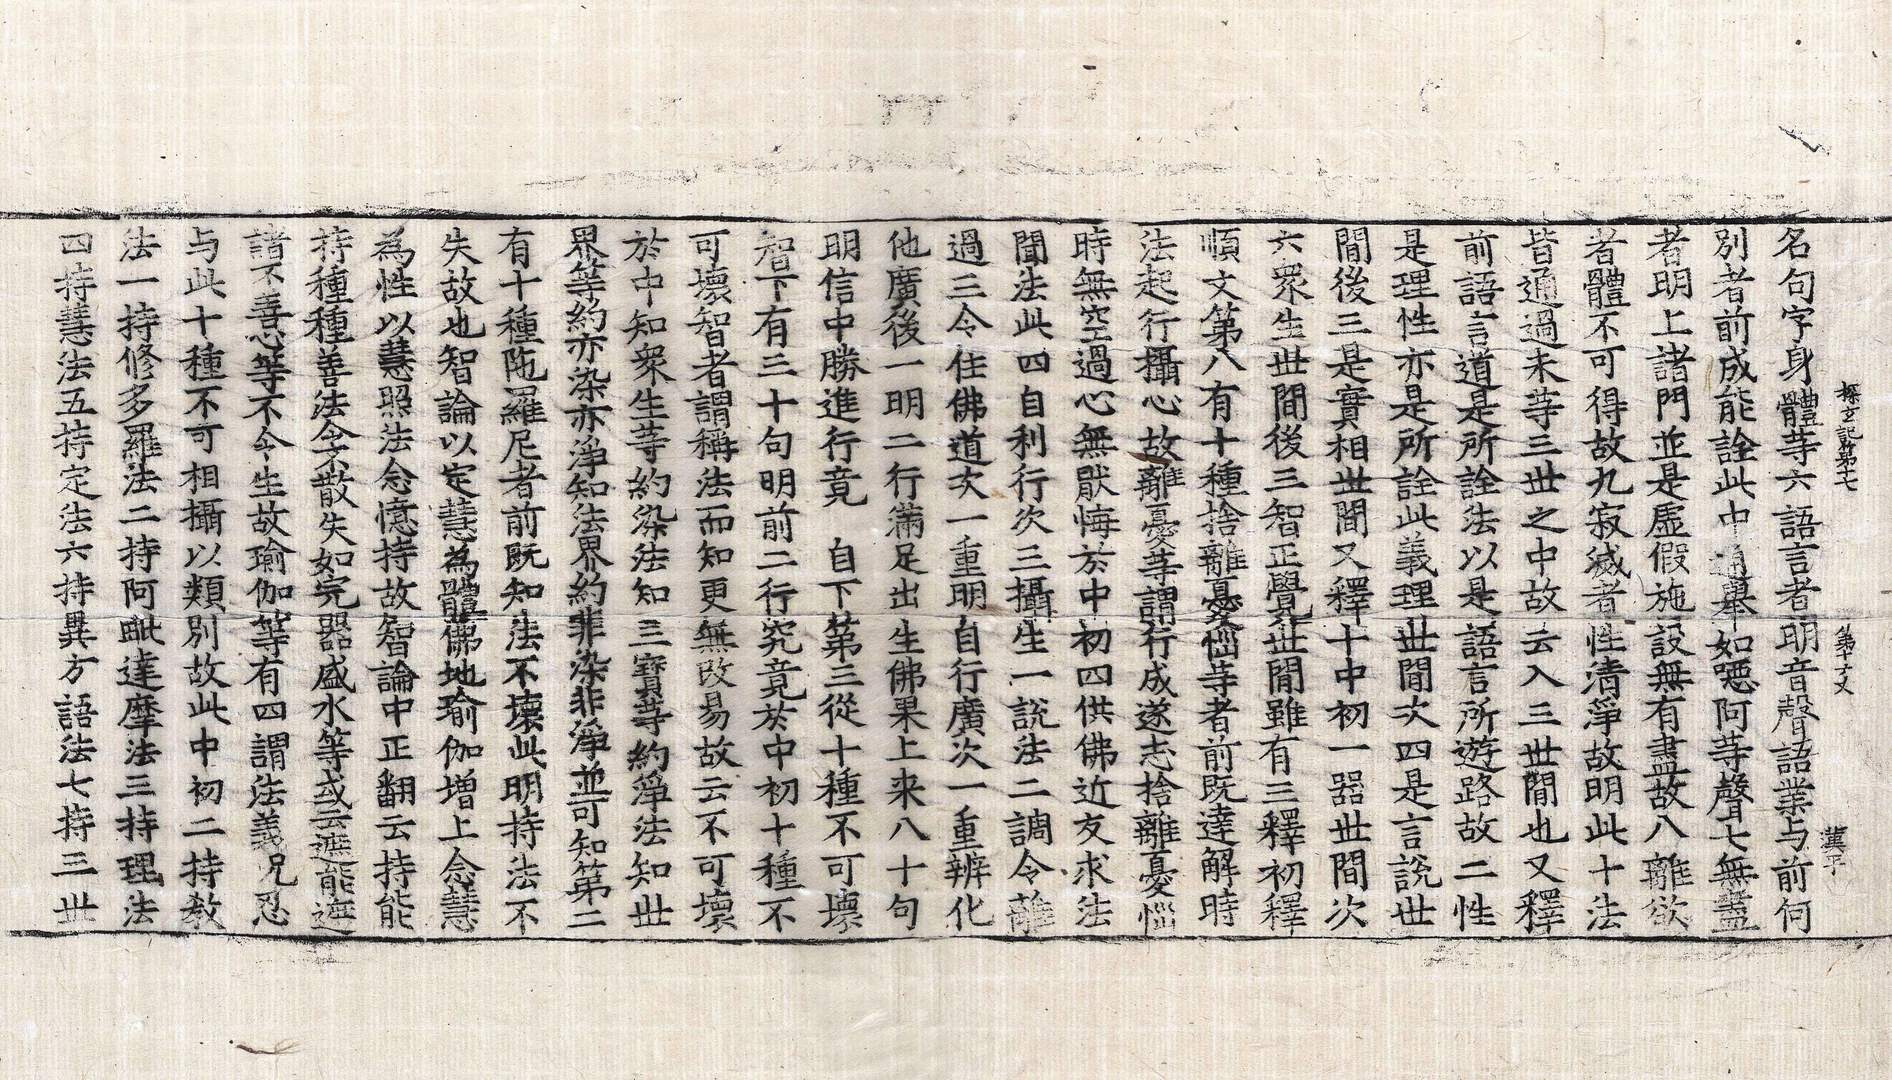 探玄記第七　第十六丈　漢平
名句字身體等六語言者明音聲語業与前何
別者前成能詮此中通舉如噁阿等聲七無盡
者明上諸門並是虛假施設無有盡故八離欲
者體不可得故九寂滅者性清淨故明此十法
皆通過未等三世之中故云入三世間也又釋
前語言道是所詮法以是語言所遊路故二性
是理性亦是所詮此義理世間次四是言說世
間後三是實相世間又釋十中初一器世間次
六眾生世間後三智正覺世間雖有三釋初釋
順文第八有十種捨離憂惱等者前既達解時
法起行攝心故離憂等謂行成遂志捨離憂惱
時無空過心無厭悔於中初四供佛近友求法
聞法此四自利行次三攝生一說法二調令離
過三令住佛道次一重明自行廣次一重辨化
他廣後一明二行滿足出生佛果上来八十句
明信中勝進行竟　自下第三從十種不可壞
智下有三十句明前二行究竟於中初十種不
可壞智者謂稱法而知更無改易故云不可壞
於中知眾生等約染法知三寶等約淨法知世
界等約亦染亦淨知法界約非染非淨並可知第二
有十種陁羅尼者前既知法不壞此明持法不
失故也智論以定慧為體佛地瑜伽增上念慧
為性以慧照法念憶持故智論中正翻云持能
持種種善法令不散失如完器盛水等或云遮能遮
諸不善心等不令生故瑜伽等有四謂法義咒忍
与此十種不可相攝以類別故此中初二持教
法一持修多羅法二持阿毗達摩法三持理法
四持慧法五持定法六持異方語法七持三世